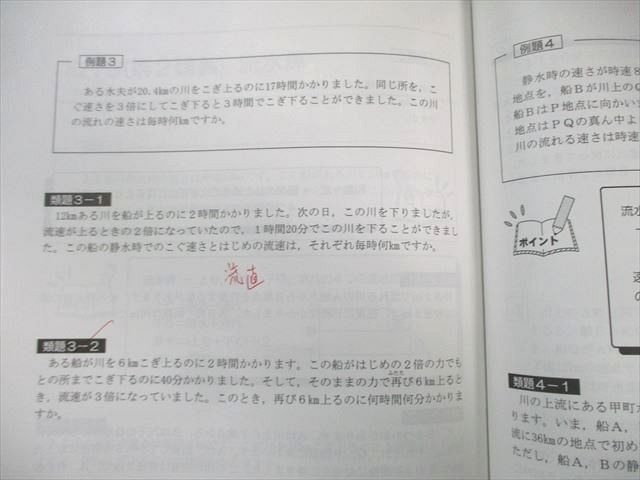 例題3
ある水夫が20.4kmの川をこぎ上るのに17時間かかりました。同じ所を，こ
ぐ速さを3倍にしてこぎ下ると3時間でこぎ下ることができました。この川
の流れの速さは毎時何kmですか。
類題3−1
12kmある川を船が上るのに2時間かかりました。次の日，この川を下りましたが，
流速が上るときの2倍になっていたので，1時間20分でこの川を下ることができまし
た。この船の静水時でのこぐ速さとはじめの流速は，それぞれ毎時何kmですか。
流直
類題3−2
ある船が川を6kmこぎ上るのに2時間かかります。この船がはじめの2倍の力でも
との所までこぎ下るのに40分かかりました。そして，そのままの力で再び6km上ると
ふたた
き，流速が3倍になっていました。このとき，再び6km上るのに何時間何分かかりま
すか。
例題4
静水時の速さが時速8
地点を，船Bが川上のQ
船BはP地点に向かいま
地点はPQの真ん中よ
川の流れる速さは時速
ポイント
流水
速
類題4−1
川の上流にある甲町か
ります。いま，船A，
流に36kmの地点で初め
ただし，船A，Bの静